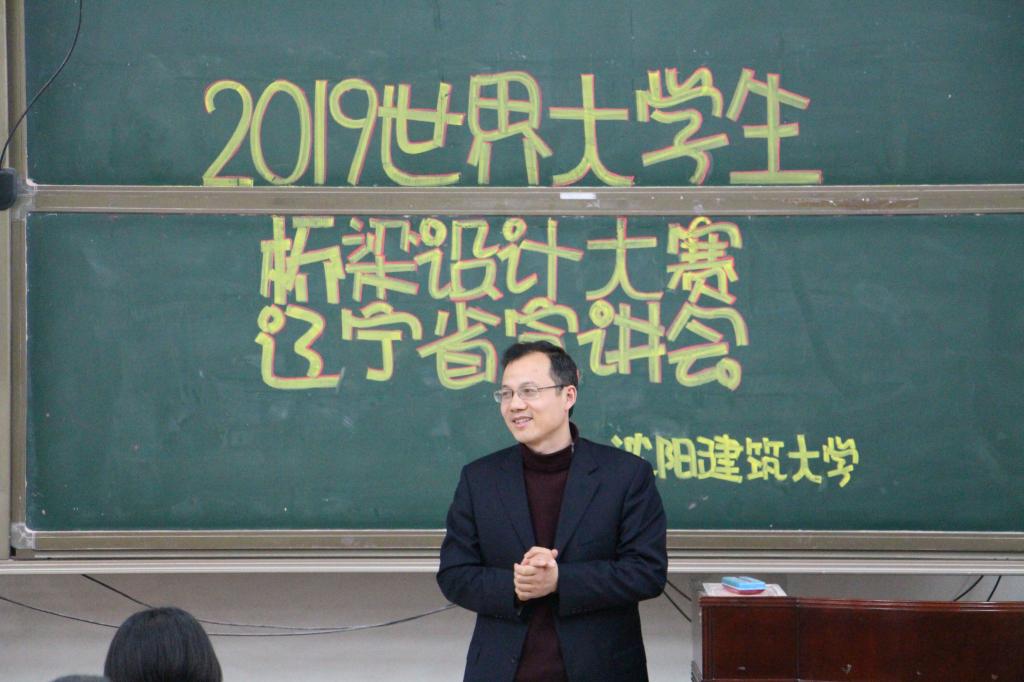 2019世界大学生
桥梁设计大赛
辽宁省宣讲会
沈阳建筑大学